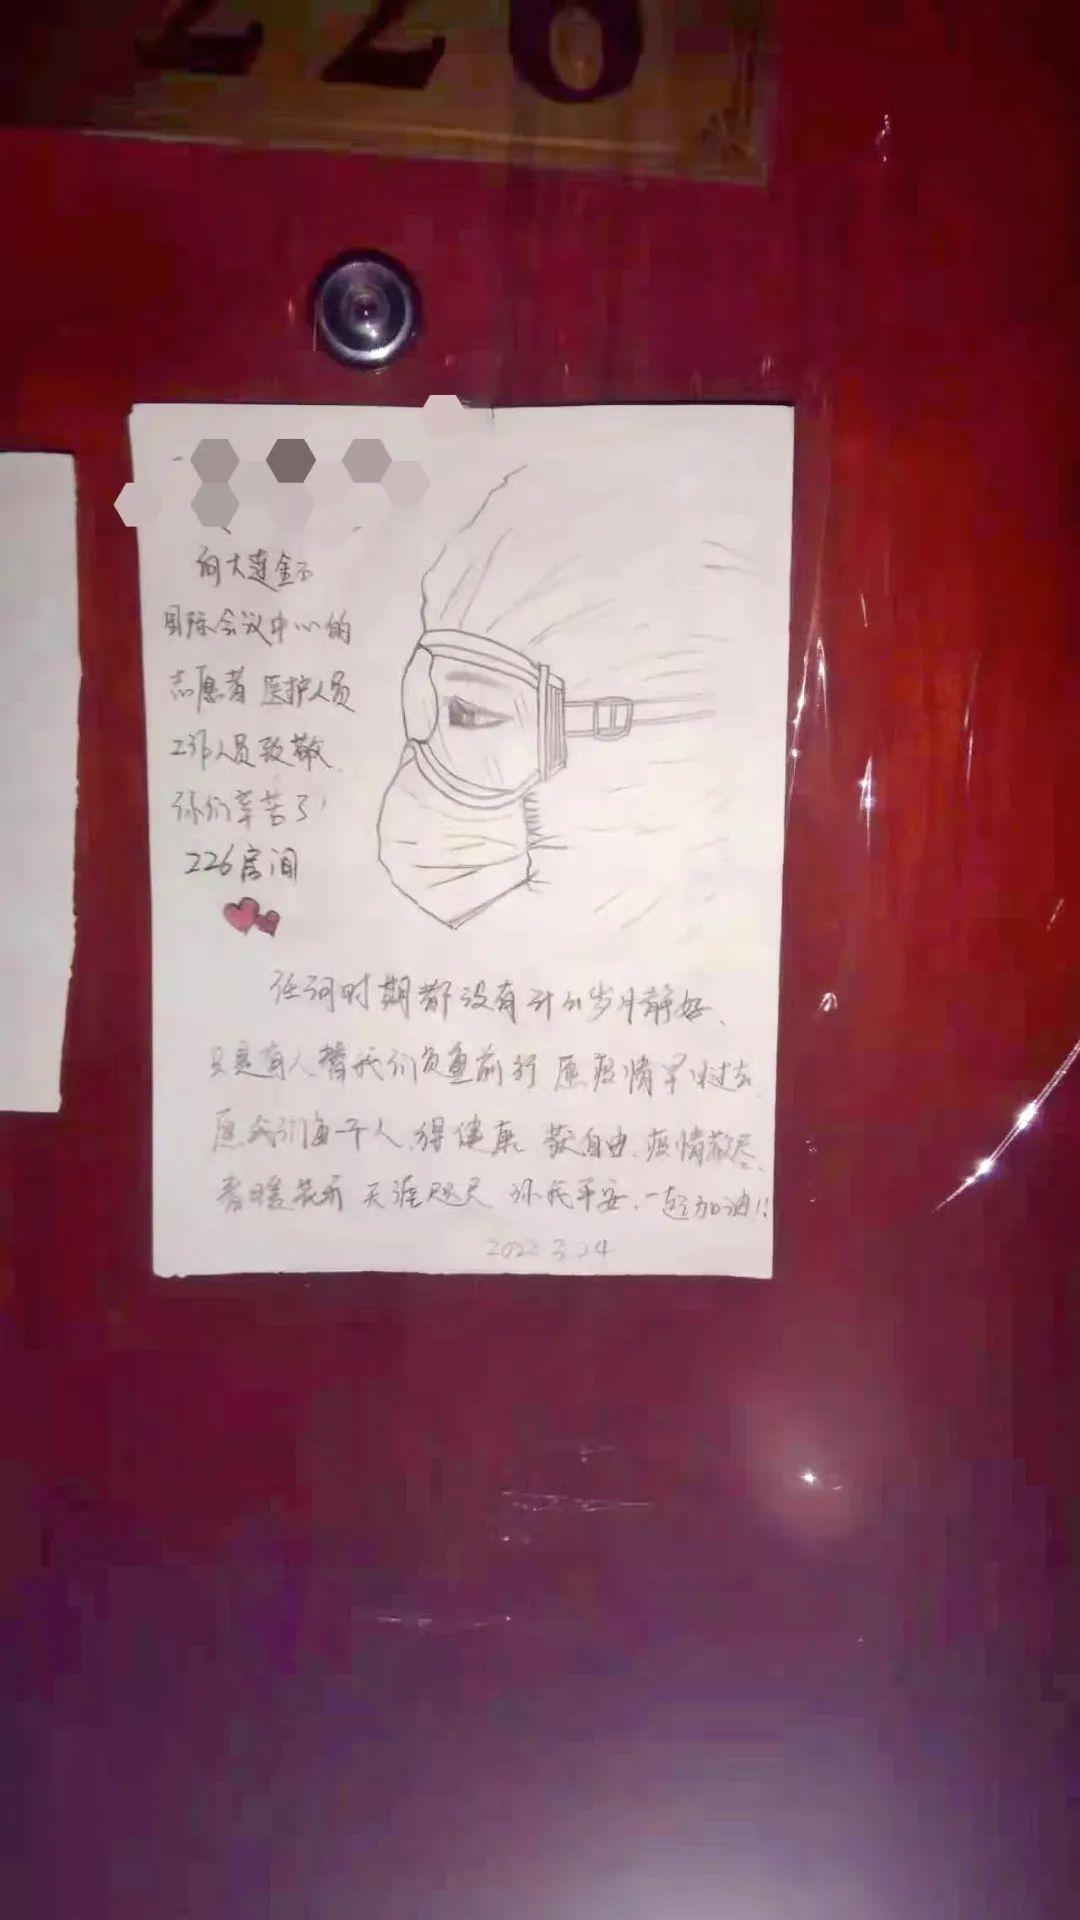 226
向大连金石
国际会议中心的
志愿者 医护人员
工作人员致敬
你们辛苦了!
226房间
任何时期都没有什么岁月静好、
只是有人替我们负重前行 愿疫情早过去
愿我们每一个人、得健康、获自由、疫情散尽、
春日暖花开 天涯咫尺 你我平安、一起加油!!
2022 3 24